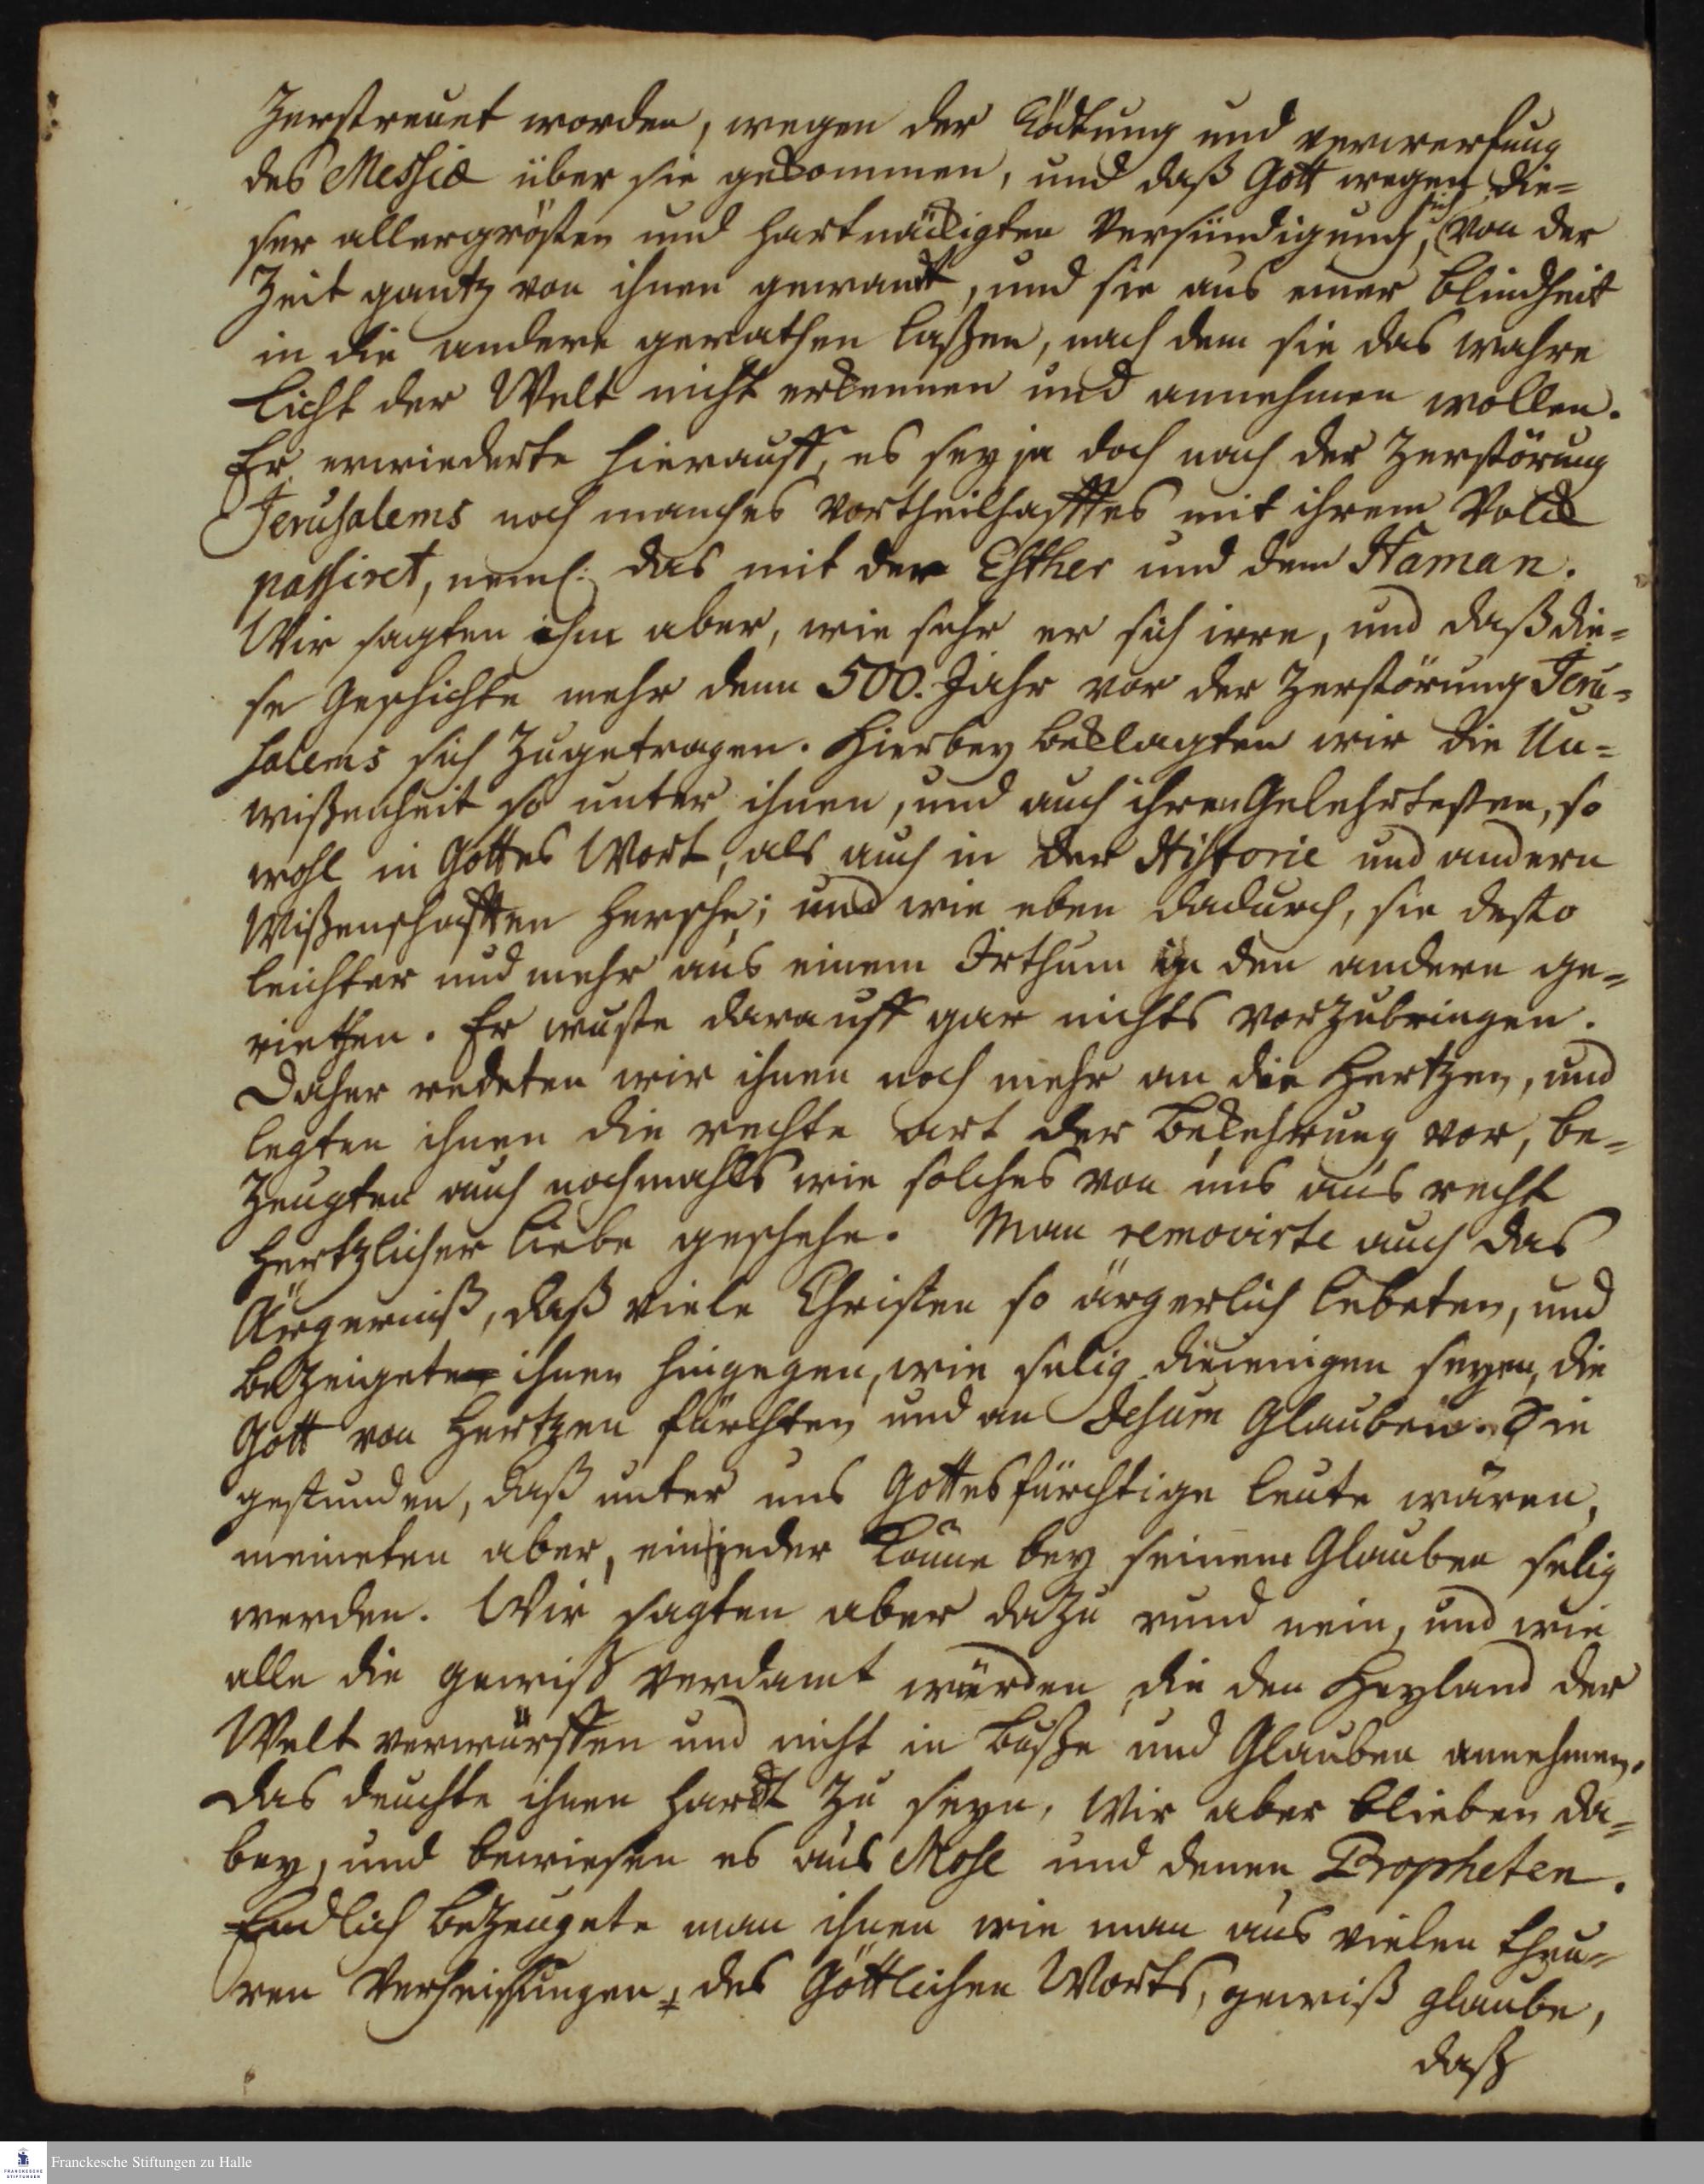 Zerstreuet worden, wegen der Tödtung und verwerfung
des Messiæ über sie gekommen, und daß Gott wegen die=
ser allergrösten und hartnäckigten Versündigung, sich von der
Zeit gantz von ihnen gewandt, und sie aus einer Blindheit
in die andere gerathen laßen, nach dem sie das wahre
Licht der Welt nicht erkennen und annehmen wollen.
Er erwiederte hierauff, es sey ja doch nach der Zerstörung
Jerusalems noch manches vortheilhafftes mit ihrem Volck
passiret, neml: das mit der Esther und dem Haman.
Wir sagten ihm aber, wie sehr er sich irre, und daß die=
se Geschichte mehr denn 500. Jahr vor der Zerstörung Jeru=
salems sich Zugetragen. Hierbey beklagten wir die Un=
wißenheit so unter ihnen, und auch ihren Gelehrtesten, so
wohl in Gottes Wort, als auch in der Historie und andern
Wißenschafften hersche; und wie eben dadurch, sie desto
leichter und mehr aus einem Irthum in den andern ge=
riethen. Er wuste darauff gar nichts vorzubringen.
Daher redeten wir ihnen noch mehr an die Hertzen, und
legten ihnen die rechte art der Bekehrung vor, be=
Zeugten auch nochmahls wie solches von uns aus recht
Hertzlicher Liebe geschehe. Man removirte auch das
Ärgerniß, daß viele Christen so ärgerlich lebeten, und
beZeigete ihnen hingegen, wie selig diejenigen seyen, die
Gott von Hertzen fürchten und an Jesum Glauben. Sie
gestunden, daß unter uns Gottesfürchtige Leute wären,
meineten aber, ein jeder könne bey seinem Glauben selig
werden. Wir sagten aber daZu rund nein, und wie
alle die gewiß verdamt würden die den Heyland der
Welt verwürffen und nicht in Buße und Glauben annehmen.
Das deuchte ihnen hardt Zu seyn, Wir aber blieben da=
bey, und bewiesen es aus Mose und denen Propheten.
Endlich beZeugete man ihnen wie man aus vielen theu=
ren Verheissungen des Göttlichen Worts, gewiß glaube,
daß
Franckesche Stiftungen zu Halle